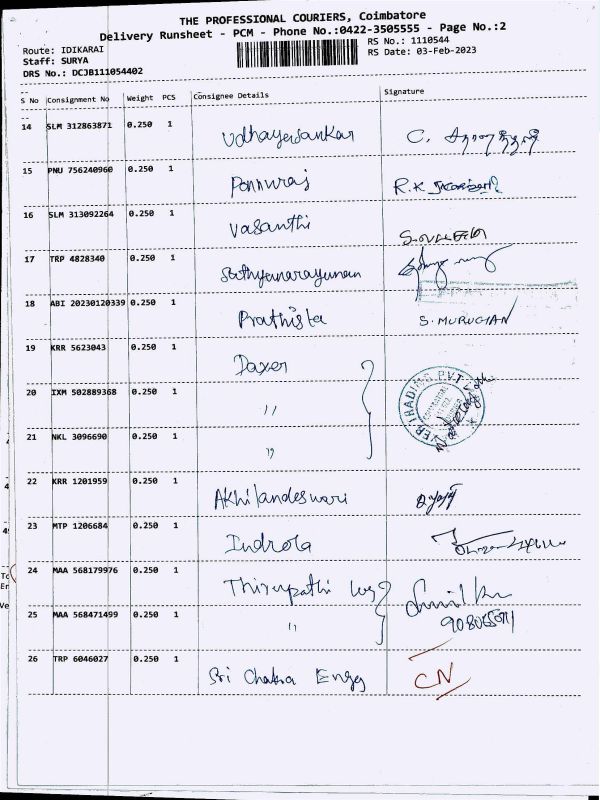 THE PROFESSIONAL COURIERS, Coimbatore
Delivery Runsheet - PCM - Phone No.:0422-3505555 - Page No.:2
Route: IDIKARAI
RS No.: 1110544
Staff: SURYA
RS Date: 03-Feb-2023
DRS No.: DCJB111054402
S No Consignment No Weight PCS Consignee Details Signature
14 SLM 312863871 0.250 1 Udhayasankar C.
15 PNU 756240960 0.250 1 Ponnuraj R.K
16 SLM 313092264 0.250 1 Vasanthi
17 TRP 4828340 0.250 1 Sathyanarayanan
18 ABI 20230120339 0.250 1 Prathista S. MURUGIAN
19 KRR 5623043 0.250 1 Daxer
20 IXM 502889368 0.250 1 "
21 NKL 3096690 0.250 1 "
TRADING PVT
22 KRR 1201959 0.250 1 Akhilandeswari
23 MTP 1206684 0.250 1 Indrola
24 MAA 568179976 0.250 1 Thirupathi
25 MAA 568471499 0.250 1 "
26 TRP 6046027 0.250 1 Sri Chakra Engg CN